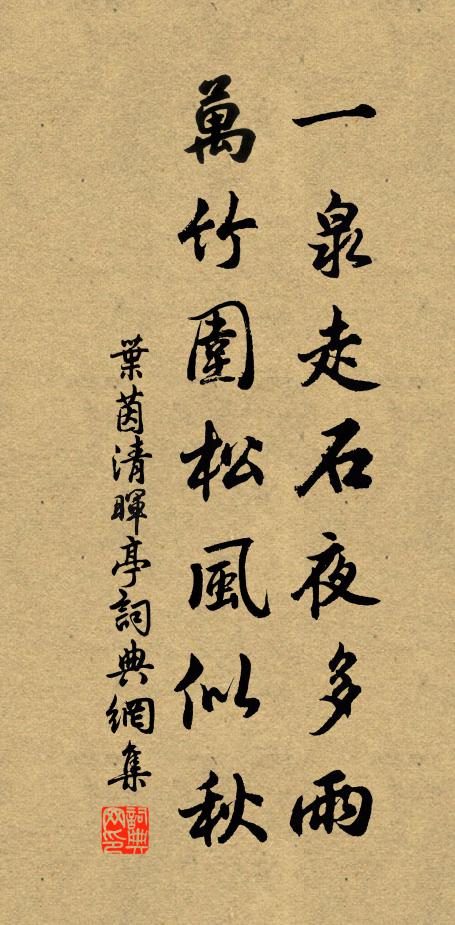 一泉走石夜多雨
萬竹圍松風似秋
葉茵清暉亭詞典網集
詞典网印